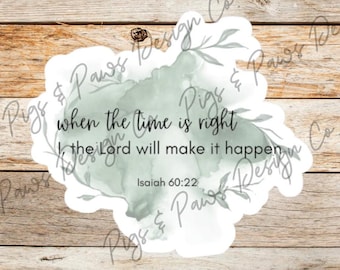 when the time is right
I, the Lord will make it happen
Isaiah 60:22
Pigs & Paws Design Co
Pigs & Paws Design Co
Pigs & Paws Design Co